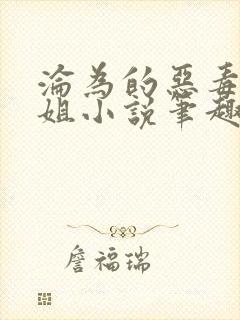 淪為的惡毒
姐小說筆趣
詹福瑞